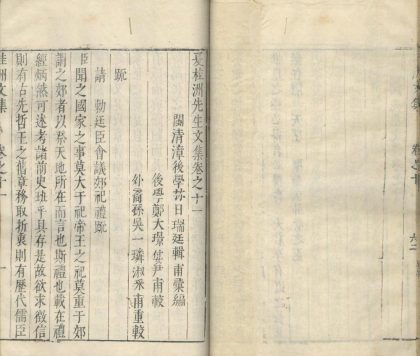 夏桂洲先生文集卷之十一
閩清漳後學林日瑞廷輯甫彙編
後學鄭大璟
甫較
外裔孫吳一璘淑承甫重較
疏
請勅廷臣會議郊祀禮疏
臣聞之國家之事莫大于祀帝王之祀莫重于郊
謂之郊者以祭天地所在而言也斯禮也載在禮
經炳然可述考諸前史班乎具存是故欲求徵信
則有古先哲王之舊章務取折衷則有歷代儒臣
桂洲文集
卷之十一
一